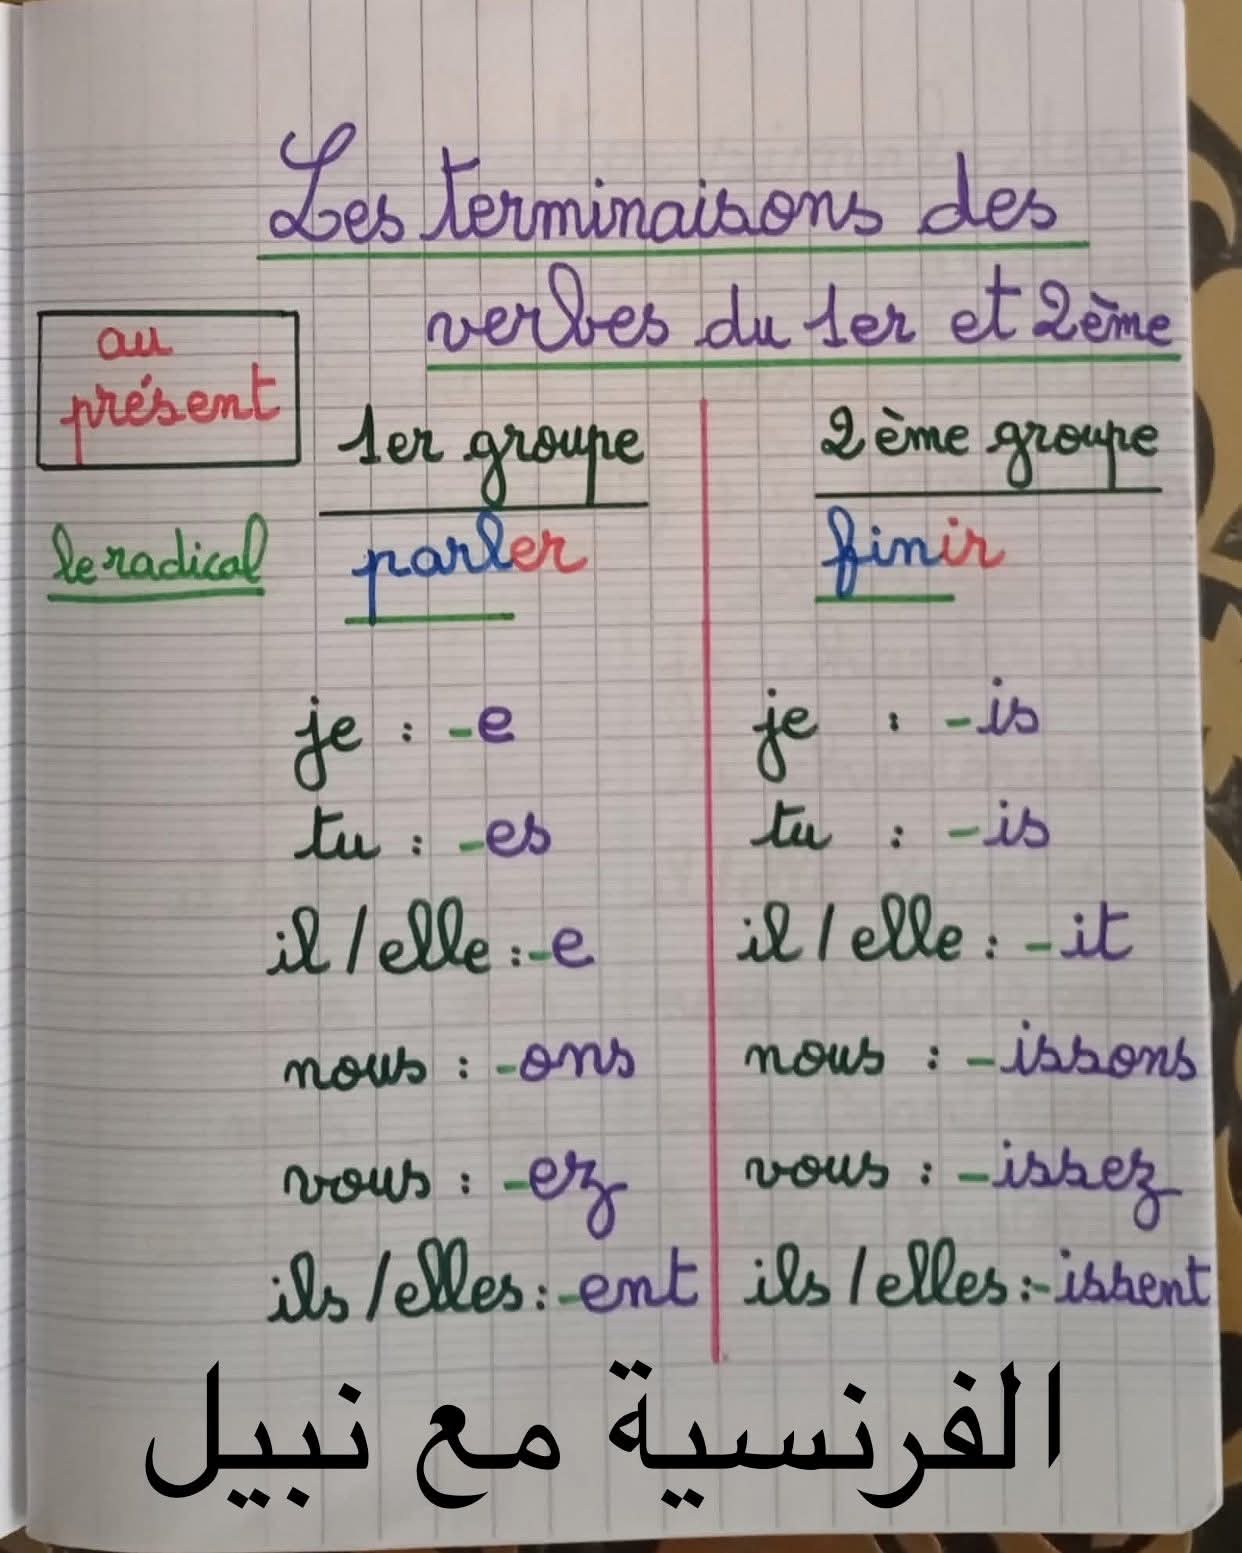 Les terminaisons des
verbes du 1er et 2ème
au
présent
1er groupe
2ème groupe
le radical
parler
finir
je : -e
je : -is
tu : -es
tu : -is
il / elle : -e
il / elle : -it
nous : -ons
nous : -issons
vous : -ez
vous : -issez
ils / elles : -ent
ils / elles : -issent
الفرنسية مع نبيل